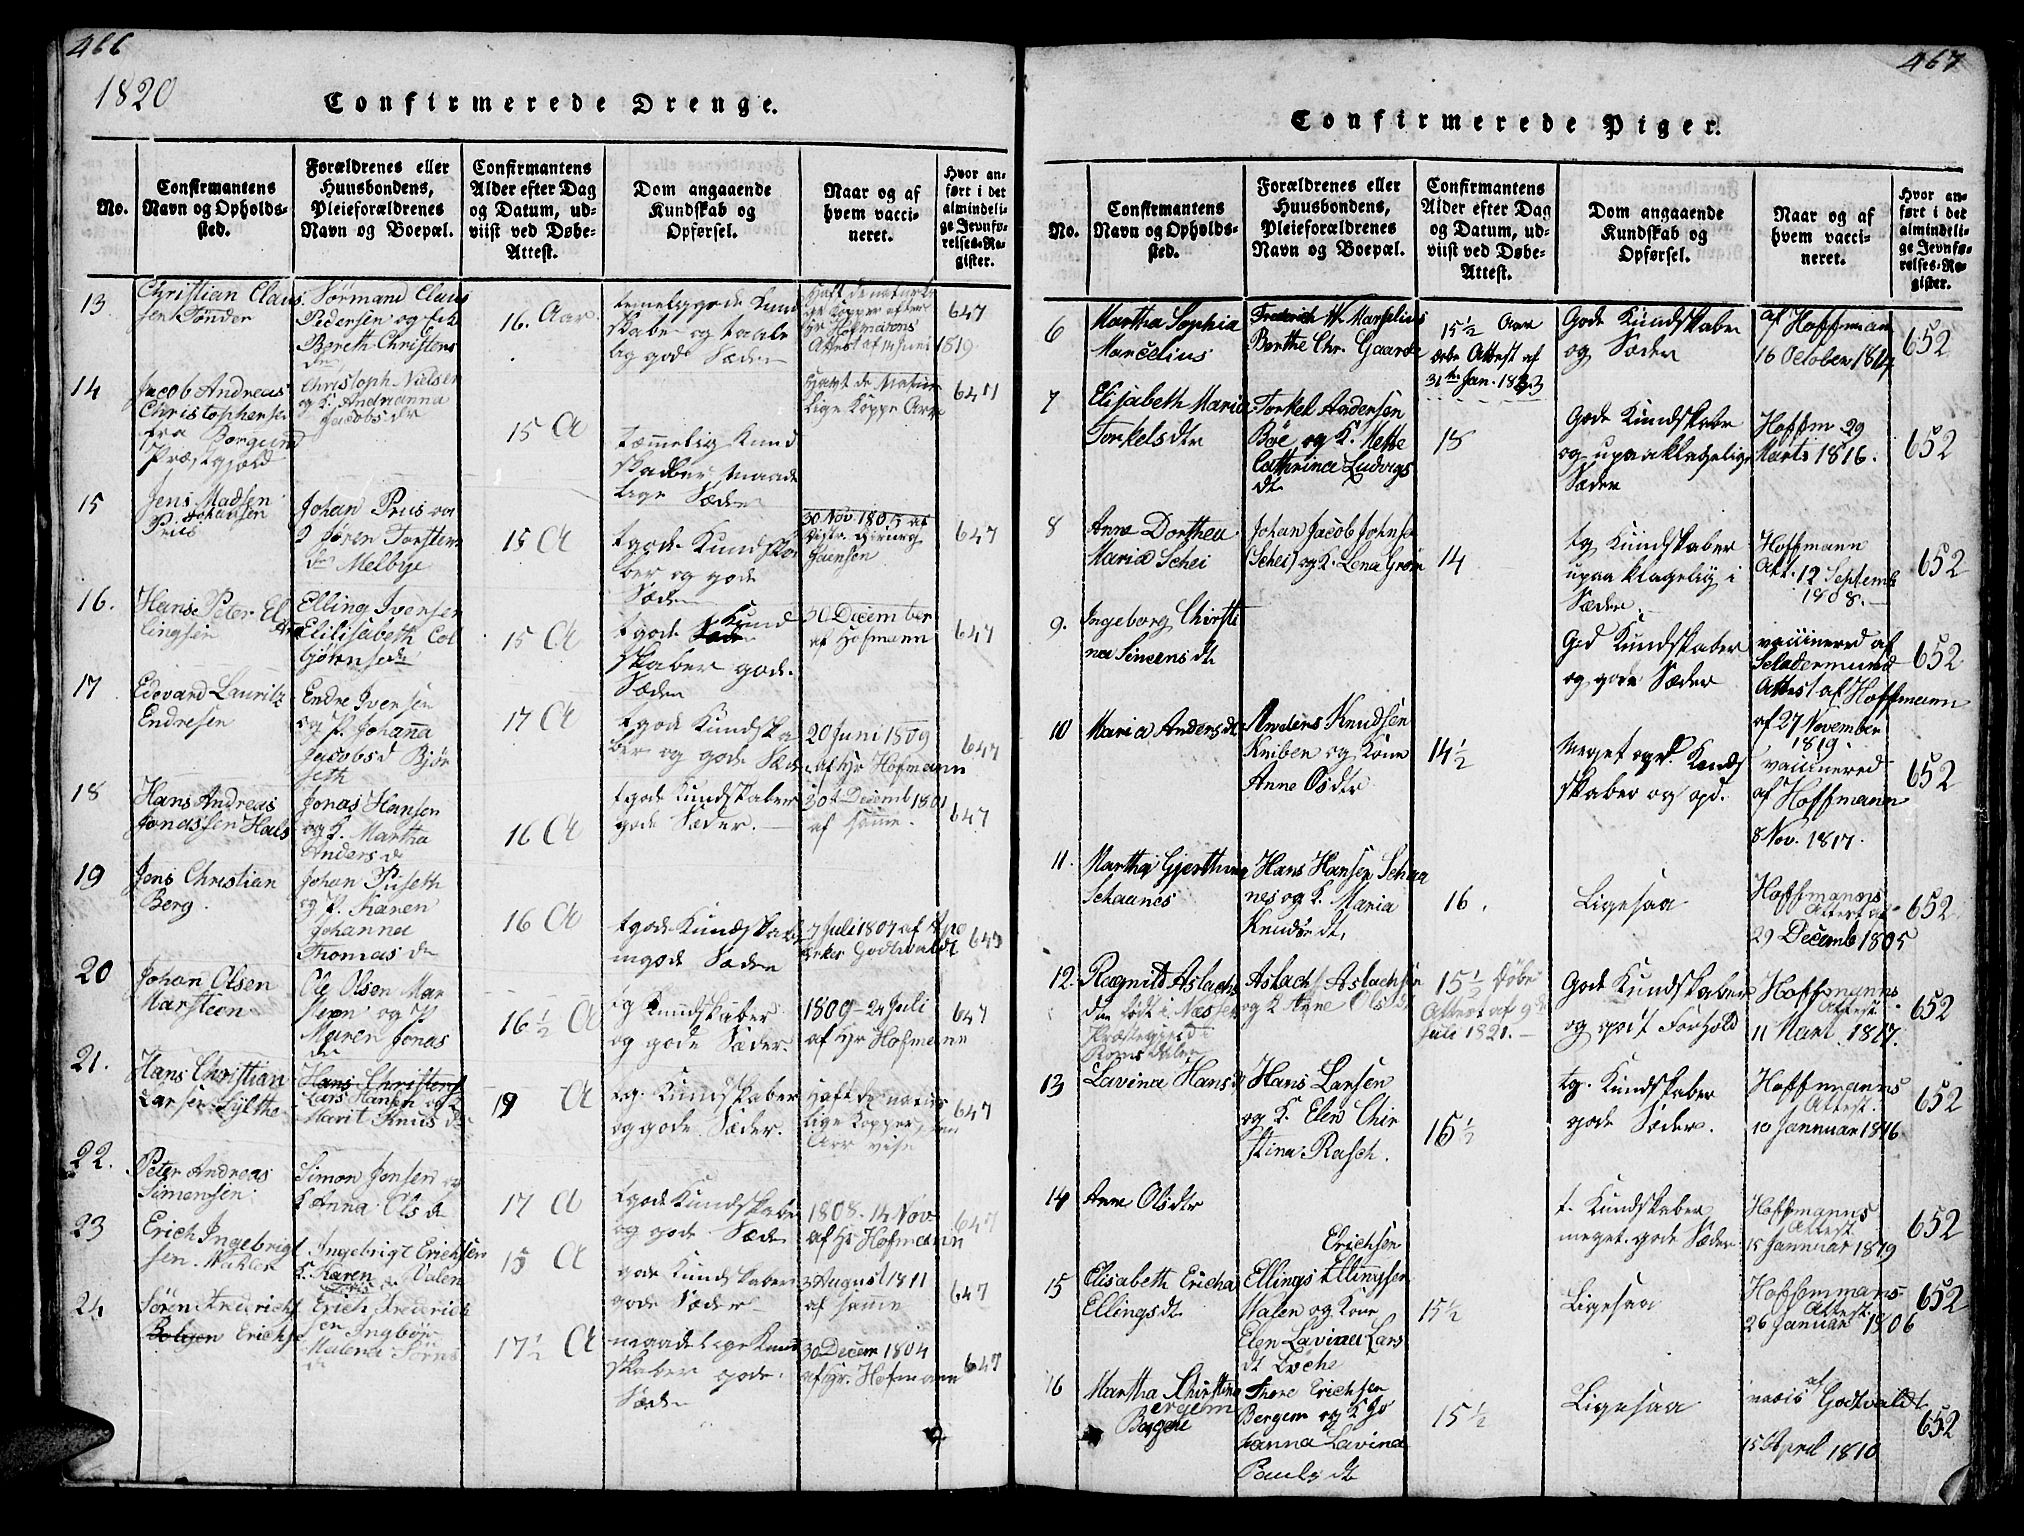 466
1820
Confirmerede Drenge.
No.
Confirmantens Navn og Opholdssted.
Forældrenes eller Huusbondens, Pleieforældrenes Navn og Boepæl.
Confirmantens Alder efter Dag og Datum, udviist ved Døbe-Attest.
Dom angaaende Kundskab og Opførsel.
Naar og af hvem vaccineret.
Hvor anført i det almindelige Jevnførelses-Register.
13
Christian Claus
sen Tønder
Sørmand Claus
Pedersen og
Bereth Christens
dr
16. Aar
temelig gode Kund
skaber og taale
lig gode Sæder
Haft de naturli
ge Kopper efter
Hr Hofmanns
Attest af 14 Juni 1819
647
14
Jacob Andreas
Christophersen
fra Borgund
Præstgjæld
Christoph Nielsen
og K. Andrianna
Jacobs dr
15 A
tæmmelig Kund
skaber, maade
lige Sæder
Havt de Natur
lige Koppe Arr
647
15
Jens Madsen
Johansen
Priis
Johan Priis
Jøren Torstens
dr Melbye
15 A
tgode Kundska
ber og gode
Sæder
30 Nov 1805 af
Distr. Chirurg.
647
16.
Hans Peter El
lingsen
Elling Iversen
Elilisabeth Col
bjørnsdr
15 A
tgode Kund
skaber gode
Sæder
30 December
af Hofmann
647
17
Edevard Lauritz
Endresen
Endre Iversen
og K. Johana
Jacobsd Bjør
seth
17 A
tgode Kundska
ber og gode Sæd
20 Juni 1809
af Hr Hofmann
647
18
Hans Andreas
Jonassen Hals
Jonas Hansen
og K. Martha
Anders d
16 A
tgode Kundskaber
gode Sæder.
30t Decemb 1801
af samme.
647
19
Jens Christian
Berg.
Johan Piiseth
og K. Karen
Johanna
Thomas dr
16 A
tgode Kundskabe
n gode Sæder
7 Juli 1807 af Apo
teker Godtwaldt
647
20
Johan Olsen
Marsteen
Ole Olsen Mar
steen og K
Maren Jonas
dr
16 ½ A
tg Kundskaber
og gode Sæder.
1809 - 24 Juli
af Hr Hofmann
647
21.
Hans Christian
Larsen Sylthe
Lars Hansen og K
Marit Knus dr
19 A
tg. Kundskaber
og gode Sæder.
Haft de natur
lige Kopper, som
Arr vise
647
22.
Peter Andreas
Simensen
Simon Jonsen og
K Anna Ols dr
17 A
tgode Kundskaber
og gode Sæde
1808. 14 Nov
af Hr Hofmann
647
23
Erich Ingebrigt
sen Walen
Ingebrigt Erichsen
K. Karen
Valen
15 A
gode Kundskaber
gode Sæder
3 August 1811
af samme
647
24
Søren Fredrichs
Erichs
Erich Fredrich
sen Ingbør
Malena Sørns
dr
17 ½ A
maadelige Kund
skaber gode
Sæde
30 Decem 1804
af Hr. Hofmann
647
467
Confirmerede Piger.
No.
Confirmantens Navn og Opholdssted.
Forældrenes eller Huusbondens, Pleieforældrenes Navn og Boepæl.
Confirmantens Alder efter Dag og Datum, udviist ved Døbe-Attest.
Dom angaaende Kundskab og Opførsel.
Naar og af hvem vaccineret.
Hvor anført i det almindelige Jevnførelses-Register.
6
Martha Sophia
Marcelius
Frederich W. Marselius
Berthe Chr. Gaarde
15 ½ Aar
Attest af
31te Jan. 1823
Gode Kundskaber
og Sæder
af Hoffman
16 October 1814
652
7
Elisabeth Maria
Torkelsdtr
Torkel Andersen
Böe og K. Mette
Cathrina Ludvigs
dt
18
Gode Kundskaber
og upaaklagelige
Sæder
Hoffm 29
Marts 1816.
652
8
Anne Dorthea
Maria Schei
Johan Jacob Johnse
(Schei) og K. Lena Grøn
14
tg Kundskaber
upaaklagelig i
Sæder.
Hoffmann
Att. 12 Septemb
1808.
652
9.
Ingeborg Christi
na Simensdt
God Kundskaber
og gode Sæder
vaccinered af
Attest af Hoffmann
af 27 November
1819.
652
10
Maria Andersdt
Anders Knudsen
Kriben og Kone
Anne Olsdtr
14 ½
Meget gode Kund
skaber og opf.
vaccinered
af Hoffmann
8 Nov. 1817.
652
11.
Martha Gjerthina
Schaanes
Hans Hansen Schaa
nes og K. Maria
Knudsdt,
16.
Ligesaa
Hoffmanns
Attest af
29 Decemb 1805
652
12.
Ragnild Aslachs
dtr født i Næsset
Præstegield i
Romsdalen
Aslach Aslachsen
og K Anne Olsdt
15 ½ Døbe
Attest af 9de
Juli 1821.
Gode Kundskaber
og godt Forhold
Hoffmanns
Attest
11 Mart. 1817.
652
13
Lavina Hansd
Hans Larsen
og K. Elen Chir
stina Rasch.
15 ½
tg. Kundskaber
gode Sæder.
Hoffmanns
Attest.
10 Januar 1816
652
14
Anne Olsdtr
t. Kundskaber
meget gode Sæder
Hoffmanns
Attest
15 Januar 1819
652
15
Elisabeth Ericha
Ellingsdt
Erichsen
Ellings Ellingsen
Walen og Kone
Elen Lavina Lars
dt
15 ½
Ligesaa
Hoffmanns
Attest
26 Januar 1806
652
16
Martha Christina
Bergem
Thore Erichsen
Bergem og K Jo
hanna Lavina
Pauls dt
15 ½
Ligesaa
af Godtvaldt
15 April 1810
652